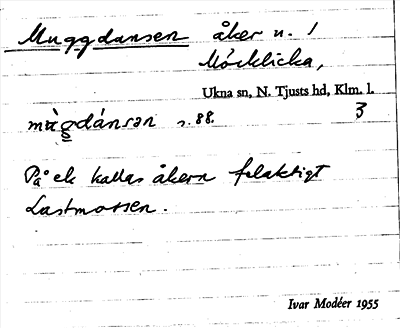 Muggdansen åker n. 1
Mörklicka,
Ukna sn, N. Tjusts hd, Klm. l.
3
mùgdánsən s. 88.
På ek kallas åkern felaktigt
Lastmossen.
Ivar Modéer 1955